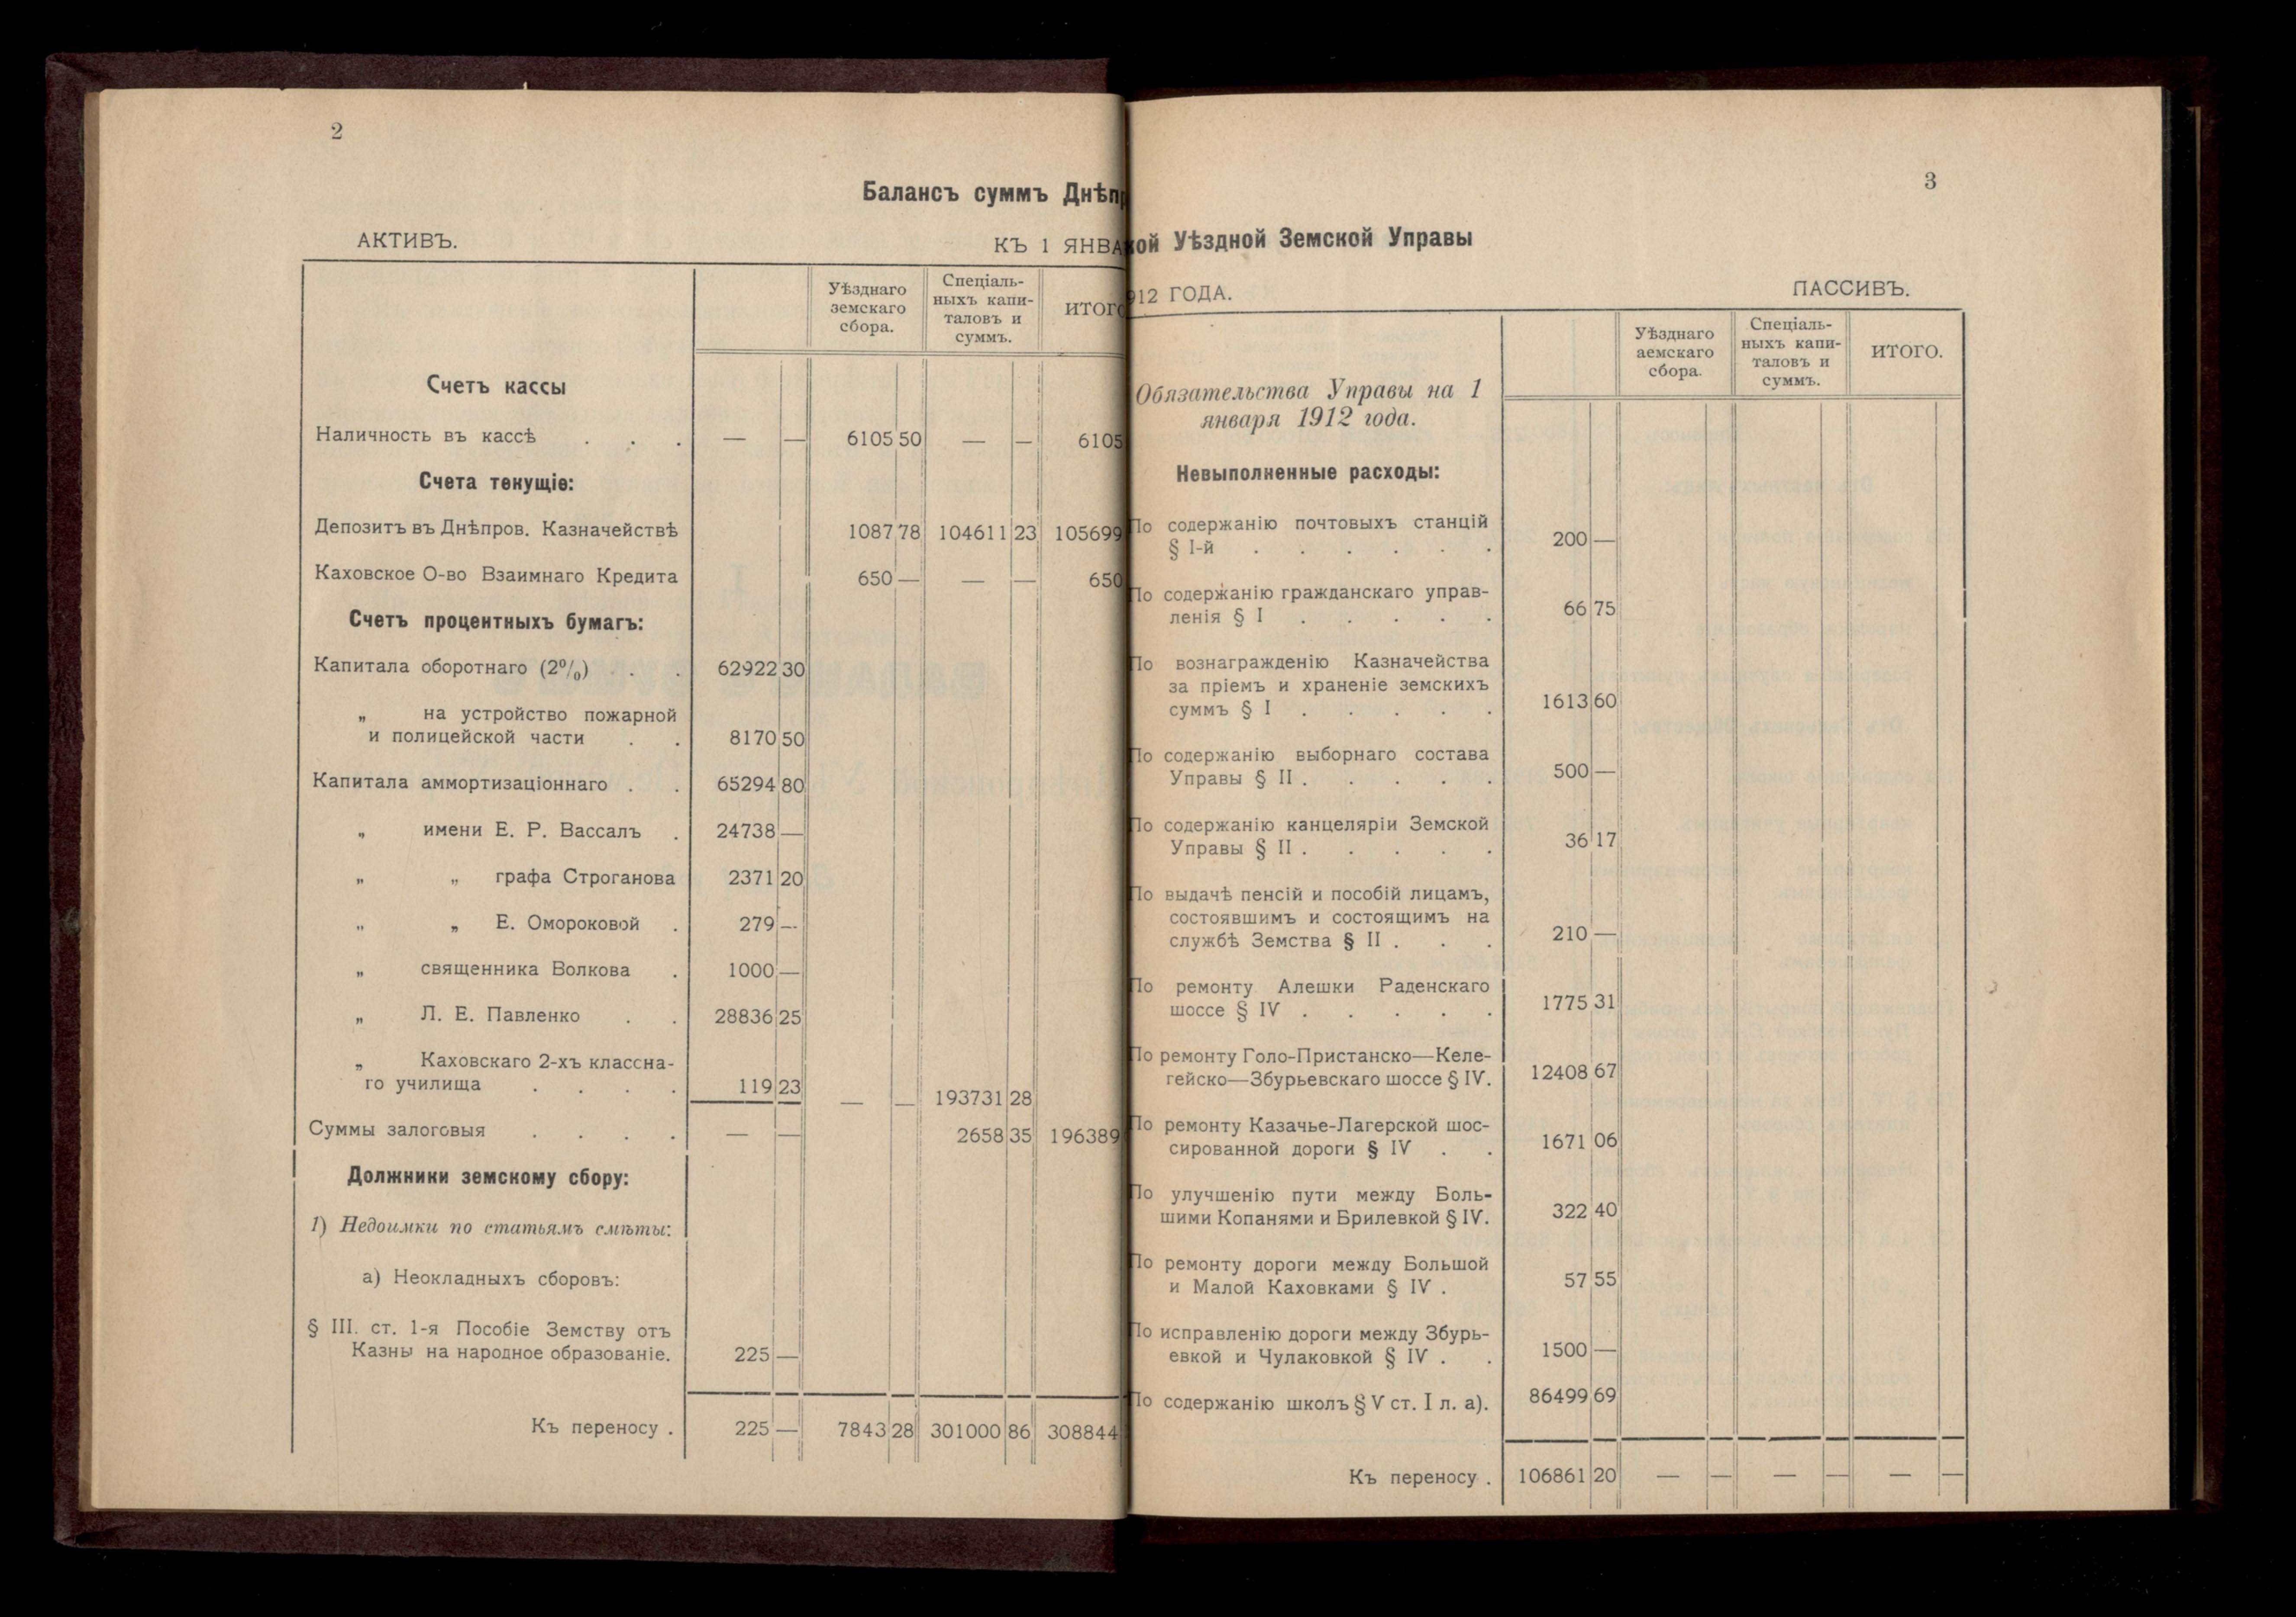 2
Балансъ суммъ Днѣпр
АКТИВЪ.
КЪ 1 ЯНВА
Уѣзднаго
земскаго
сбора.
Спеціаль-
ныхъ капи-
таловъ и
суммъ.
ИТОГО
Счетъ кассы
Наличность въ кассѣ . . . — — 6105 50 — — 6105
Счета текущіе:
Депозитъ въ Днѣпров. Казначействѣ 1087 78 104611 23 105699
Каховское О-во Взаимнаго Кредита 650 — — — 650
Счетъ процентныхъ бумагъ:
Капитала оборотнаго (2%) . . 62922 30
„ на устройство пожарной
и полицейской части . . 8170 50
Капитала аммортизаціоннаго . . 65294 80
„ имени Е. Р. Вассалъ . 24738 —
„ „ графа Строганова 2371 20
„ „ Е. Омороковой . 279 —
„ священника Волкова . 1000 —
„ Л. Е. Павленко . . 28836 25
„ Каховскаго 2-хъ классна-
го училища . . . . 119 23 — — 193731 28
Суммы залоговыя . . . . — — 2658 35 196389
Должники земскому сбору:
1) Недоимки по статьямъ смѣты:
а) Неокладныхъ сборовъ:
§ III. ст. 1-я Пособіе Земству отъ
Казны на народное образованіе. 225 —
Къ переносу . 225 — 7843 28 301000 86 308844
3
кой Уѣздной Земской Управы
912 ГОДА.
ПАССИВЪ.
Уѣзднаго
аемскаго
сбора.
Спеціаль-
ныхъ капи-
таловъ и
суммъ.
ИТОГО.
Обязательства Управы на 1
января 1912 года.
Невыполненные расходы:
По содержанію почтовыхъ станцій
§ I-й . . . . . . 200 —
По содержанію гражданскаго управ-
ленія § I . . . . . 66 75
По вознагражденію Казначейства
за пріемъ и храненіе земскихъ
суммъ § I . . . . . 1613 60
По содержанію выборнаго состава
Управы § II . . . . . 500 —
По содержанію канцеляріи Земской
Управы § II . . . . . 36 17
По выдачѣ пенсій и пособій лицамъ,
состоявшимъ и состоящимъ на
службѣ Земства § II . . . 210 —
По ремонту Алешки Раденскаго
шоссе § IV . . . . . 1775 31
По ремонту Голо-Пристанско—Келе-
гейско—Збурьевскаго шоссе § IV. 12408 67
По ремонту Казачье-Лагерской шос-
сированной дороги § IV . . 1671 06
По улучшенію пути между Боль-
шими Копанями и Брилевкой § IV. 322 40
По ремонту дороги между Большой
и Малой Каховками § IV . 57 55
По исправленію дороги между Збурь-
евкой и Чулаковкой § IV . . 1500 —
По содержанію школъ § V ст. I л. а). 86499 69
Къ переносу . 106861 20 — — — — — —